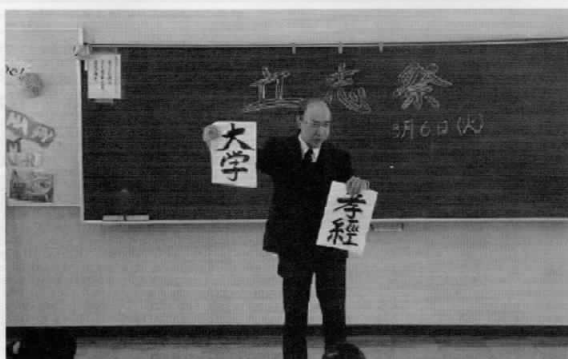 立志祭
3月6日(火)
大学
孝經